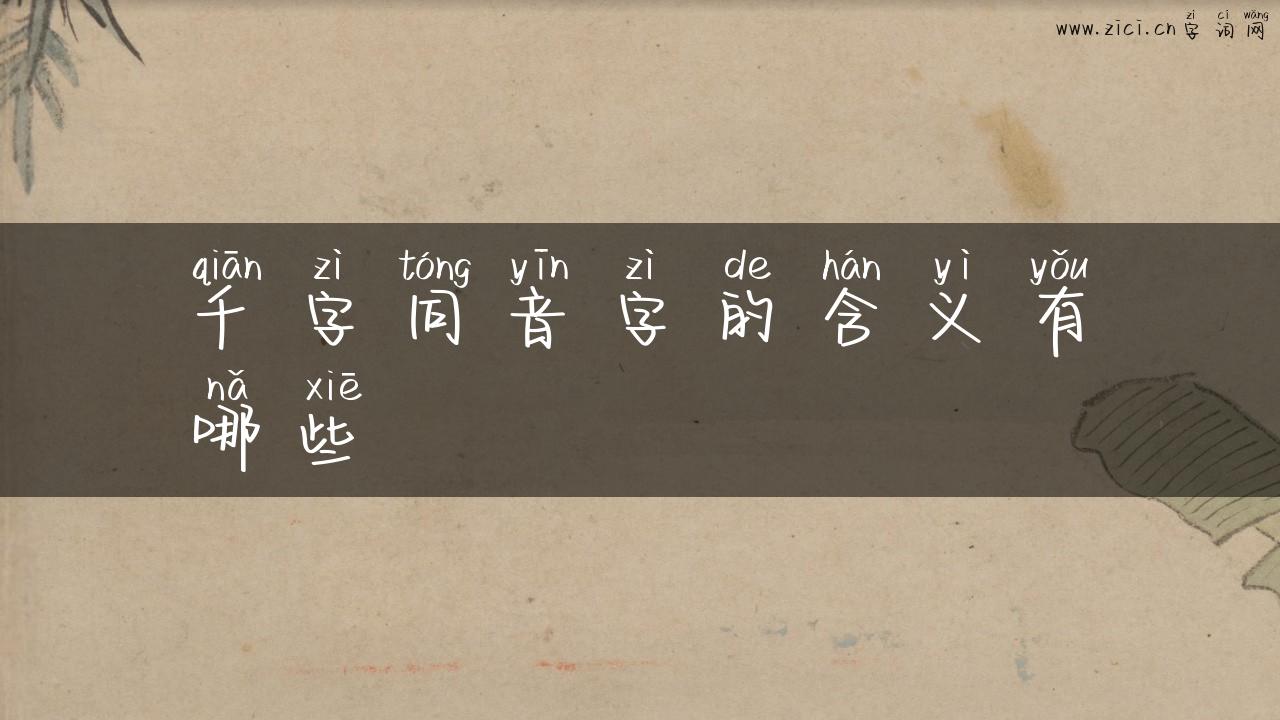 zì cí wǎng
www.zici.cn 字 词 网
qiān zì tóng yīn zì de hán yì yǒu
千 字 同 音 字 的 含 义 有
nǎ xiē
哪 些